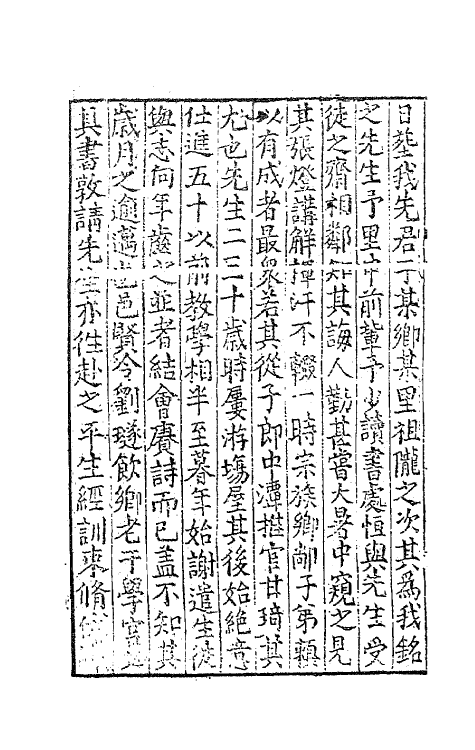 日塟我先君于某鄉某里祖隴之次其為我銘
之先生予里中前輩予少讀書處恒與先生受
徒之齋相鄰知其誨人勤甚嘗大暑中窺之見
其張燈講解揮汗不輟一時宗族鄉鄰子弟賴
以有成者最衆若其從子郎中潭推官甘琦其
尤也先生二三十歲時屢游塲屋其後始絕意
仕進五十以前教學相半至暮年始謝遣生徒
與志向年齒之並者結會賡詩而已盖不知其
歲月之逾邁也邑賢令劉璲飲鄉老于學宮
具書敦請先生亦徃赴之平生經訓束脩